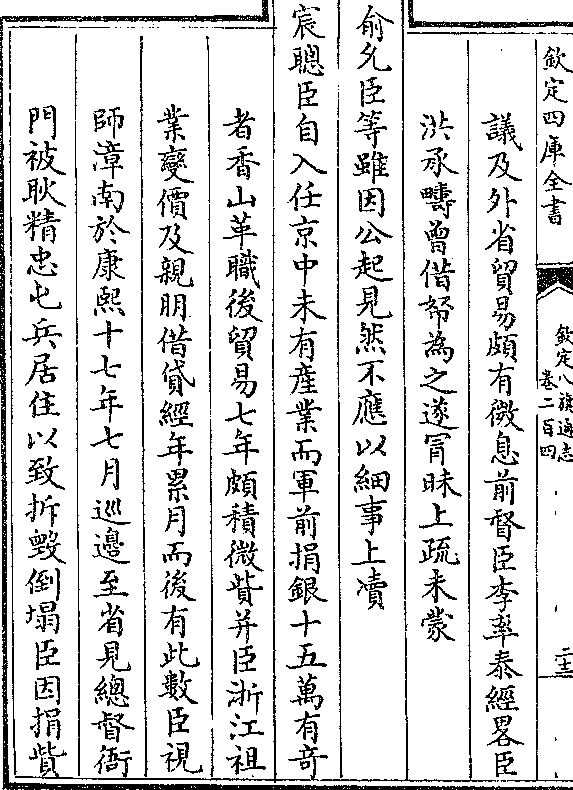 欽定四庫全書
欽定八旗通志
卷二百四
二十三
議及外省貿易頗有微息前督臣李率泰經畧臣
洪承疇曾借帑為之遂冐昧上疏未蒙
俞允臣等雖因公起見然不應以細事上凟
宸聰臣自入任京中未有産業而軍前捐銀十五萬有奇
者香山革職後貿易七年頗積微貲并臣浙江祖
業變價及親朋借貸經年累月而後有此數臣視
師漳南於康熙十七年七月巡邊至省見總督衙
門被耿精忠屯兵居住以致折毀倒塌臣因捐貲